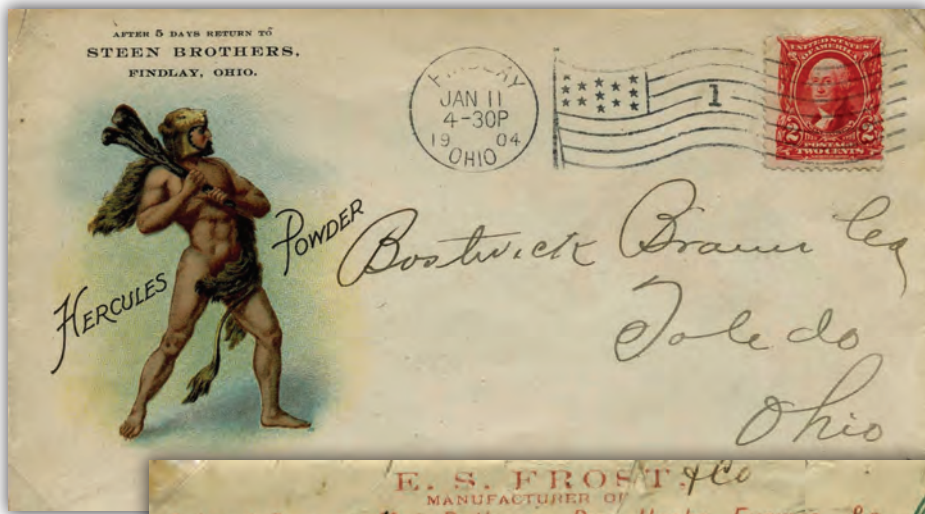 AFTER 5 DAYS RETURN TO
STEEN BROTHERS,
FINDLAY, OHIO.
FINDLAY
JAN 11
4-30P
19 04
OHIO
1
UNITED STATES
OF AMERICA
2 2
POSTAGE
TWO CENTS
HERCULES POWDER
Bostwick Braun
Toledo
Ohio
E. S. FROST, & Co
MANUFACTURER OF